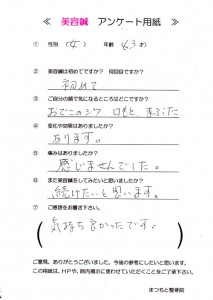 ≪ 美容鍼 アンケート用紙 ≫
① 性別 （女） 年齢（43才）
② 美容鍼は初めてですか？ 何回目ですか？
初めて
③ ご自分の顔で気になるところはどこですか？
おでこのシワ 口もと、まぶた
④ 変化や効果はありましたか？
あります。
⑤ 痛みはありましたか？
感じませんでした。
⑥ また美容鍼をしてみたいと思いましたか？
続けたいと思います。
⑦ ご感想をお書き下さい。
気持ち良かったです。
ご意見、ありがとうございました。今後の参考にしたいと思います。
この用紙は、HPや、院内掲示に使わせていただくことをご了承下さい。
まつもと整骨院